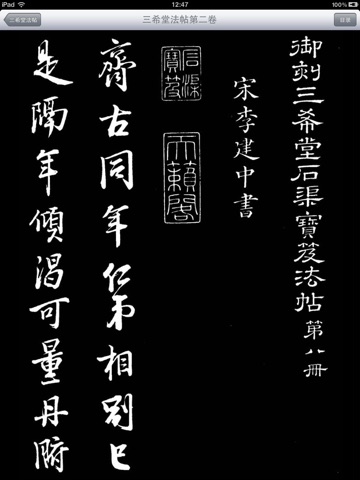 iPad 12:47 100%
三希堂法帖 三希堂法帖第二卷 目录
御刻三希堂石渠寶笈法帖 第八冊
宋李建中書
石渠寶笈
天籟閣
齊古同年仁弟相別已
是隔年傾渴可量丹腑